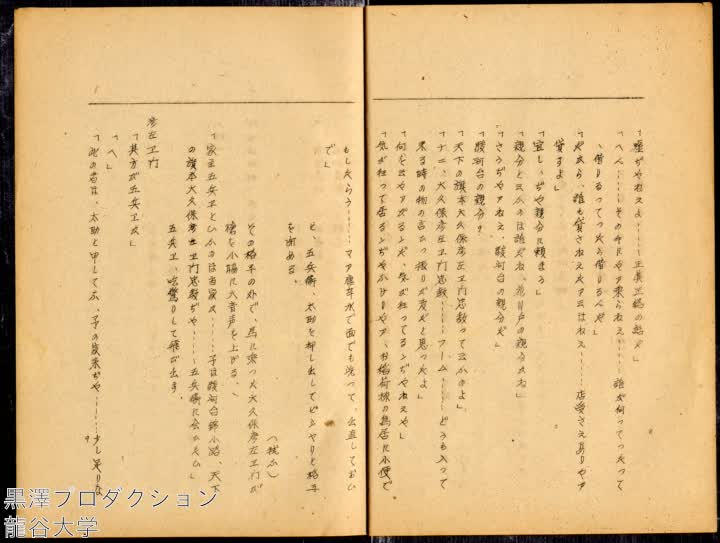 「嘘ぢやねえよ……正真正銘の話だ」
「へへ……その手にやァ乗らねえ……誰が何つてつたつて
、借りるつてつたら借りるべえ」
「だから、誰も貸さねえたァ云はねえ……店賃さえありやァ
貸すよ」
「宜しぢや親分に頼まう」
「親分と云ふのは誰だね、花川戸の親分かね」
「さうぢやァねえ、駿河台の親分だ」
「駿河台の親分?
「天下の旗本大久保彦左ヱ門忠教つて云ふのよ」
「ナニ、大久保彦左ヱ門忠教……フーム……どうも入つて
来る時の物の言ひつ振りが変だと思つたよ」
「何を云やァがるンだ、気が狂つてるンぢやねえや」
「気が狂つて居るンぢやなけりやァ、お稲荷様の鳥居に小便で
もしたらう……マア井戸水で面でも洗つて、出直しておい
で」
と、五兵衛、太助を押し出してピシヤリと格子
を閉める。
(杖ふ)
その格子の外で、馬に乗つた大久保彦左ヱ門が
槍を小脇に大音声を上げる、
「家主五兵ヱといふのは当家か……予は駿河台錦小路、天下
の旗本大久保彦左ヱ門忠教ぢや……五兵衛に会ひたい」
五兵ヱ、吃驚りして飛び出す。
彦左ヱ門
「其方が五兵ヱか」
「へ」
「此の者は、太助と申してな、予の家来ぢや……少し足りな
黒澤プロダクション
龍谷大学